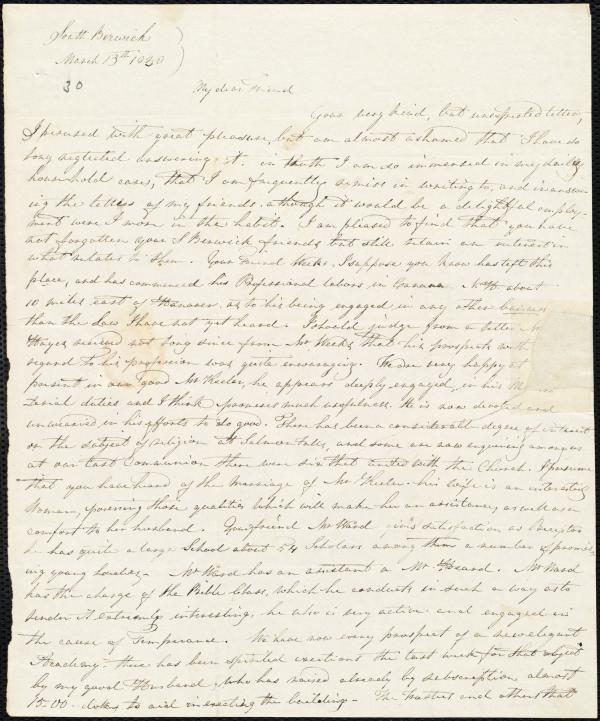 South Berwick
March 13th 1830
30
My dear Friend
Your very kind, but unexpected letter,
I perused with great pleasure, but am almost ashamed that I have so
long neglected answering it. in truth I am so immersed in my daily
household cares, that I am frequently remiss in writing to, and in answer
ing the letters of my friends. although it would be a delightful employ-
ment were I more in the habit. I am pleased to find that you have
not forgotten your S Berwick friends but still retain an interest in
what relates to them. Your friend Weeks, I suppose you know has left this
place, and has commenced his Professional labors in Canaan about
10 miles east of Hanover. as to his being engaged in any other business
than the Law I have not yet heard. I should judge from a letter Mr
Hayes received not long since from Mr Weeks that his prospects with
regard to his profession was quite encouraging. We are very happy at
present in our good Mr Keeler, he appears deeply engaged in his
terial duties and I think promises much usefulness. He is now devoted and
unwearied in his efforts to do good. There has been a considerable degree of interest
on the subject of religion at Salmon falls, and some are now enquiring among us
at our last Communion there were six that united with the Church. I presume
that you have heard of the marriage of Mr Keeler. his wife is an interesting
Woman, possessing those qualities which will make her an assistance, as well as a
comfort to her husband. Your friend Mr Ward gives satisfaction as Preceptor
he has quite a large School about 54 Scholars among them a number of promis
ing young Ladies - Mr Ward has an assistant a Mr Mr Ward
has the charge of the Bible Class, which he conducts in such a way as to
render it extremely interesting, he also is very active and engaged in
the cause of Temperance. We have now every prospect of a new elegant
Academy there has been spirited exertions the last week for that object
by my good Husband, who has raised already by subscription almost
15-00- dollars to aid in erecting the building - The Trustees and others that